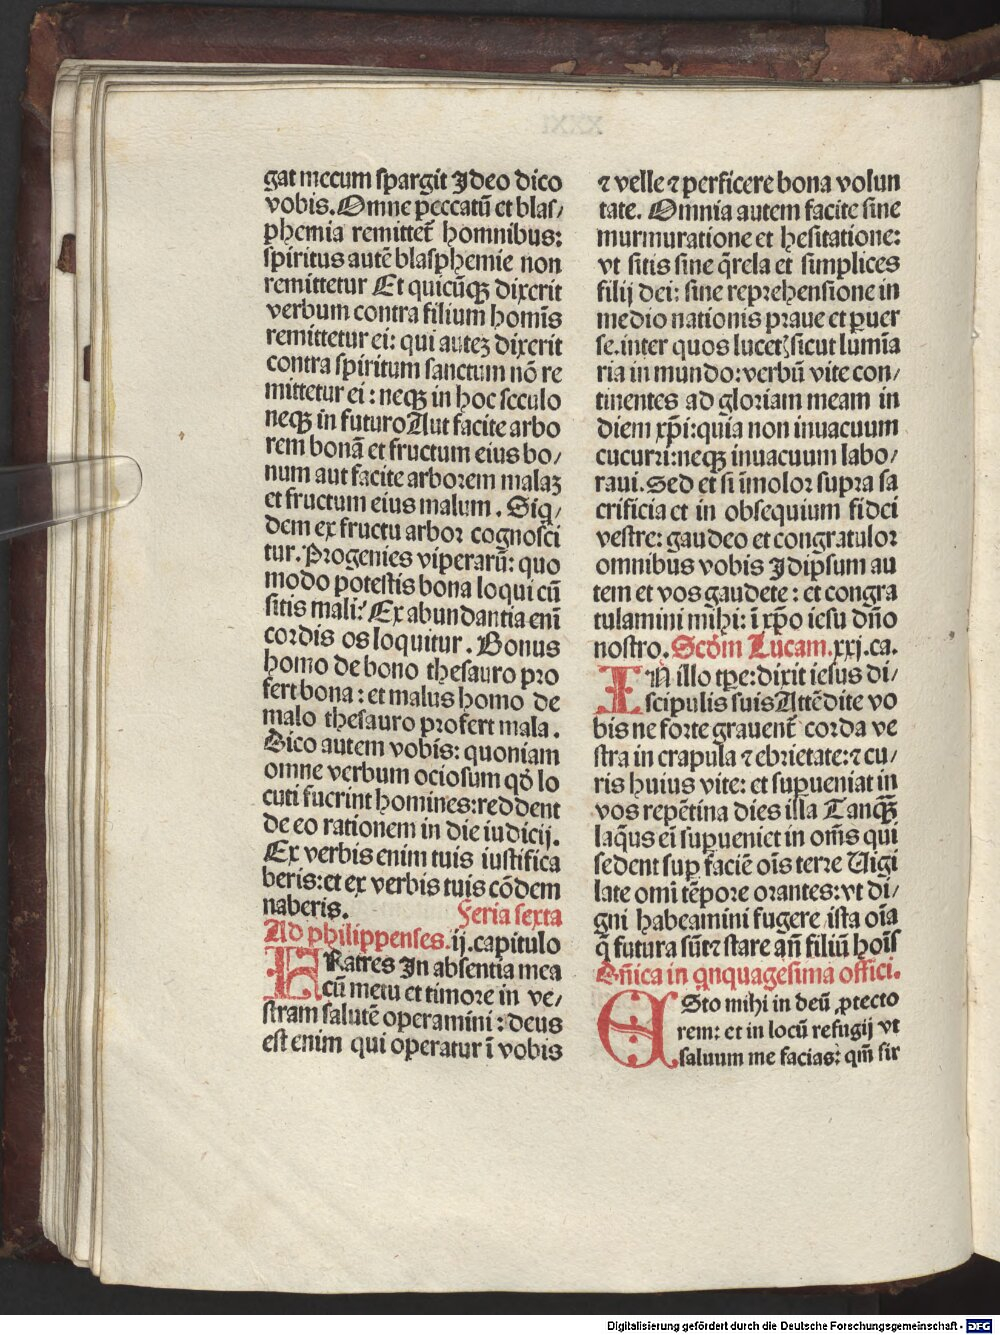 gat mecum spargit Ideo dico
vobis. Omne peccatū et blas/
phemia remittet̄ homnibus:
spiritus autē blasphemie non
remittetur Et quicūqꝫ dixerit
verbum contra filium homīs
remittetur ei: qui autez dixerit
contra spiritum sanctum nō re
mittetur ei : neqꝫ in hoc seculo
neqꝫ in futuro Aut facite arbo
rem bonā et fructum eius bo/
num aut facite arborem malaꝫ
et fructum eius malum . Siq̄/
dem ex fructu arbor cognosci
tur. Progenies viperarū: quo
modo potestis bona loqui cū
sitis mali? Ex abundantia enī
cordis os loquitur . Bonus
homo de bono thesauro pro
fert bona : et malus homo de
malo thesauro profert mala .
Dico autem vobis: quoniam
omne verbum ociosum qđ lo
cuti fuerint homines: reddent
de eo rationem in die iudicij.
Ex verbis enim tuis iustifica
beris: et ex verbis tuis cōdem
naberis. Feria sexta
Ad philippenses. ij. capitulo
FRatres In absentia mea
cū metu et timore in ve/
stram salutē operamini : deus
est enim qui operatur ī vobis
⁊ velle ⁊ perficere bona volun
tate. Omnia autem facite sine
murmuratione et hesitatione:
vt sitis sine q̄rela et simplices
filij dei: sine reprehensione in
medio nationis praue et ꝑuer
se. inter quos lucet̄ sicut lumīa
ria in mundo: verbū vite con/
tinentes ad gloriam meam in
diem xp̄i: quia non inuacuum
cucurri: neqꝫ inuacuum labo/
raui. Sed et si īmolor supra sa
crificia et in obsequium fidei
vestre: gaudeo et congratulor
omnibus vobis Idipsum au
tem et vos gaudete : et congra
tulamini mihi: ī xp̄o iesu dn̄o
nostro. Scđm Lucam. xxj. ca.
IN illo tp̄e: dixit iesus di/
scipulis suis Attēdite vo
bis ne forte grauent̄ corda ve
stra in crapula ⁊ ebrietate: ⁊ cu/
ris huius vite: et suꝑueniat in
vos repētina dies illa Tanqꝫ̄
laq̄us eī suꝑueniet in om̄s qui
sedent suꝑ faciē oīs terre Uigi
late omī tēpore orantes: vt di/
gni habeamini fugere ista oīa
q̄ futura sūt ⁊ stare an̄ filiū hoīs
Dn̄ica in qnquagesima offici.
ESto mihi in deū ꝓtecto
rem: et in locū refugij vt
saluum me facias: qm̄ fir
XXXI
Digitalisierung gefördert durch die Deutsche Forschungsgemeinschaft - DFG